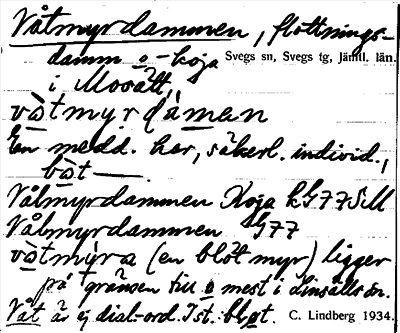 Våtmyrdammen, flottnings-
damm o - koja Svegs sn, Svegs tg, Jämtl. län.
i Mosätt,
vò̀tmyrdàman
En medd. har, säkerl. individ.,
bò̀t —
Våtmyrdammen Koja k G77 SM
Våtmyrdammen G77
vò̀tmýra (en blöt myr) ligger
på gränsen till o mest i Linsälls sn.
Våt är ej dial-ord. I st. bløt. C. Lindberg 1934.